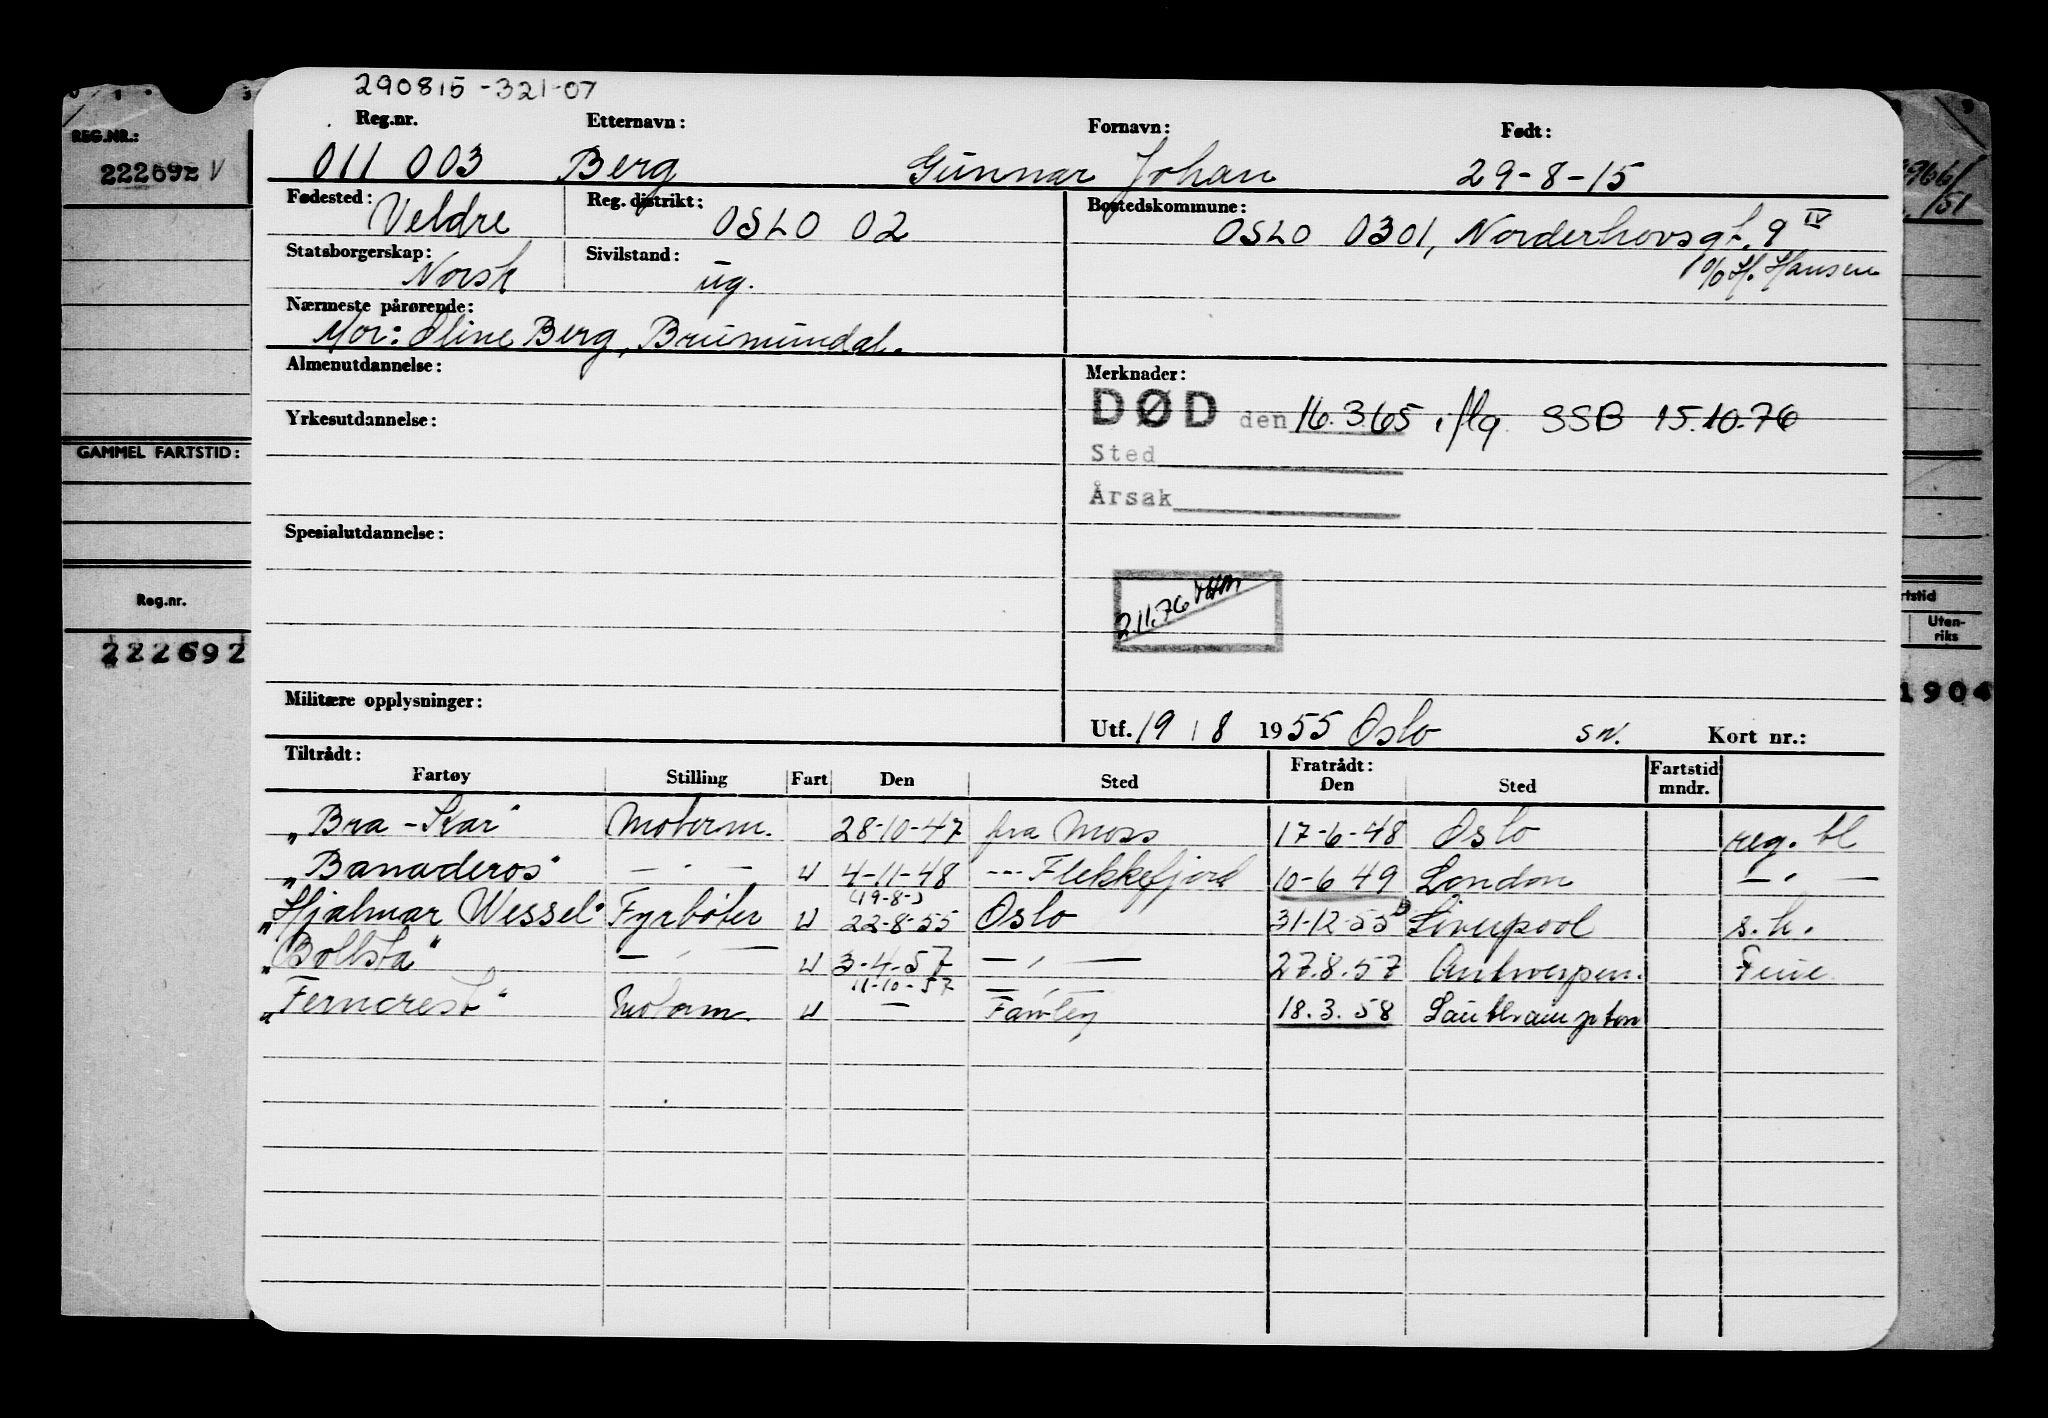 290815-321-07
Reg.nr. Etternavn: Fornavn: Født:
011 003 Berg Gunnar Johan 29-8-15
Fødested: Veldre Reg. distrikt: OSLO 02 Bostedskommune: OSLO 0301, Norderhovsgt. 9 IV
c/o H. Hansen
Statsborgerskap: Norsk Sivilstand: ug.
Nærmeste pårørende:
Mor: Oline Berg, Brumunddal.
Almenutdannelse: Merknader:
DØD den 16.3.65 iflg. SSB 15.10.76
Yrkesutdannelse:
Sted
Årsak
Spesialutdannelse:
2.11.76
Militære opplysninger:
Utf. 19 / 8 1955 Oslo s.v. Kort nr.:
Tiltrådt: Fratrådt: Fartstid
Fartøy Stilling Fart Den Sted Den Sted mndr.
"Bra-Kar" Motorm. 28-10-47 fra Moss 17-6-48 Oslo reg. bl
"Banaderos" — " — U 4-11-48 --- Flekkefjord 10-6 49 London — " —
(19-8-)
"Hjalmar Wessel" Fyrbøter U 22-8-55 Oslo 31-12-55 Liverpool s.h.
"Bollsta" — " — U 3-4-57 — " — 27.8.57 Antwerpen.
11-10-57 — " —
"Ferncrest" Motorm. U — Fawley 18.3.58 Southampton
REG.NR.:
222692 V
GAMMEL FARTSTID:
Reg.nr.
222692
1966/
/51
rtstid
Uten-
riks
1904